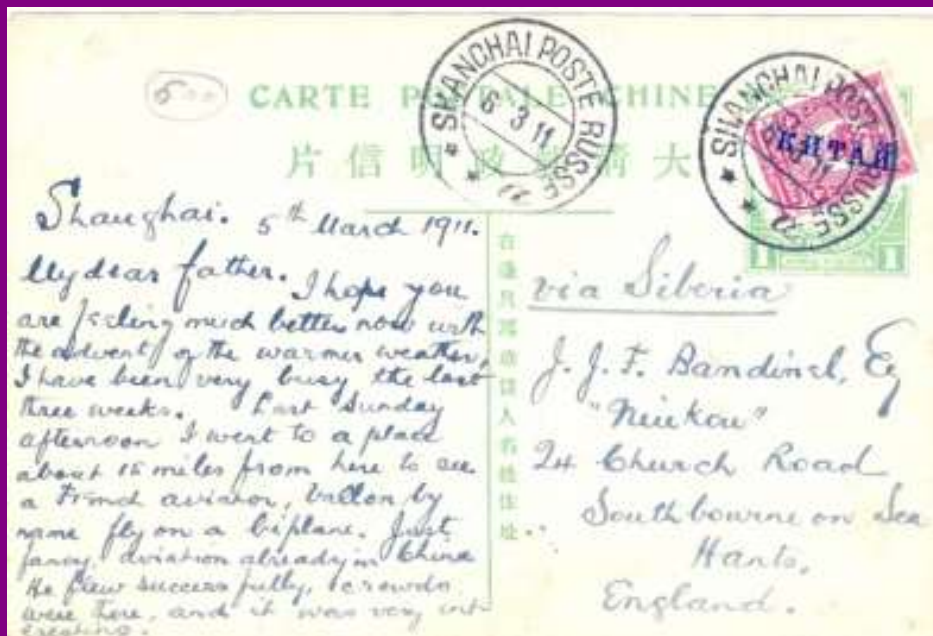 CARTE POSTALE CHINE
片信明政郵清大
SHANGHAI POSTE RUSSE
6 3 11
SHANGHAI POSTE RUSSE
КИТАЙ
1 1
Shanghai. 5th March 1911.
My dear father. I hope you
are feeling much better now with
the advent of the warmer weather,
I have been very busy the last
three weeks. Last Sunday
afternoon I went to a place
about 15 miles from here to see
a French aviator, Vallon by
name fly on a biplane. Just
fancy, aviation already in China
He flew successfully, crowds
were there, and it was very int-
eresting.
via Siberia
J. J. F. Bandinel, Esq
24 Church Road
Southbourne on Sea
Hants,
England.